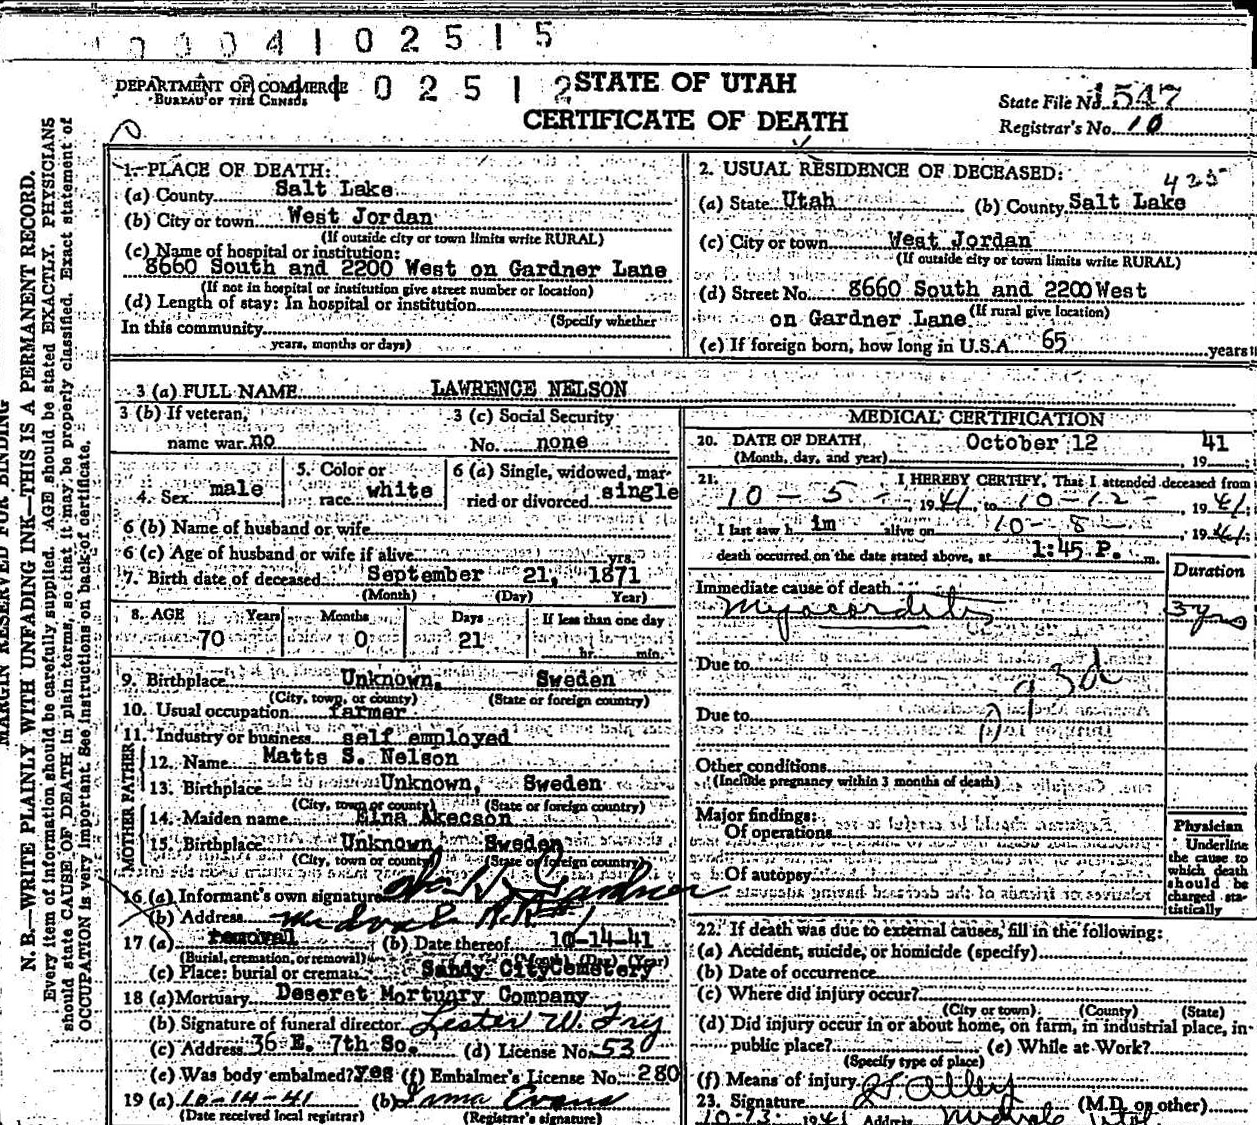 0004102515
DEPARTMENT OF COMMERCE
BUREAU OF THE CENSUS
102512
STATE OF UTAH
CERTIFICATE OF DEATH
State File No. 1547
Registrar's No. 10
MARGIN RESERVED FOR BINDING
N. B.—WRITE PLAINLY WITH UNFADING INK—THIS IS A PERMANENT RECORD.
Every item of information should be carefully supplied. AGE should be stated EXACTLY. PHYSICIANS
should state CAUSE OF DEATH in plain terms, so that it may be properly classified. Exact statement of
OCCUPATION is very important. See instructions on back of certificate.
1. PLACE OF DEATH:
(a) County Salt Lake
(b) City or town West Jordan
(If outside city or town limits write RURAL)
(c) Name of hospital or institution:
8660 South and 2200 West on Gardner Lane
(If not in hospital or institution give street number or location)
(d) Length of stay: In hospital or institution
(Specify whether
In this community
years, months or days)
2. USUAL RESIDENCE OF DECEASED:
425
(a) State Utah (b) County Salt Lake
(c) City or town West Jordan
(If outside city or town limits write RURAL)
(d) Street No. 8660 South and 2200 West
on Gardner Lane (If rural give location)
(e) If foreign born, how long in U.S.A. 65 years
3 (a) FULL NAME LAWRENCE NELSON
3 (b) If veteran, 3 (c) Social Security
name war no No. none
4. Sex male 5. Color or race white 6 (a) Single, widowed, married or divorced single
6 (b) Name of husband or wife
6 (c) Age of husband or wife if alive yrs.
7. Birth date of deceased September 21, 1871
(Month) (Day) Year)
8. AGE Years Months Days If less than one day
70 0 21 hr. min.
9. Birthplace Unknown, Sweden
(City, town, or county) (State or foreign country)
10. Usual occupation farmer
11. Industry or business self employed
FATHER
12. Name Matts S. Nelson
13. Birthplace Unknown, Sweden
(City, town or county) (State or foreign country)
MOTHER
14. Maiden name Elna Akecson
15. Birthplace Unknown Sweden
(City, town or county) (State or foreign country)
16 (a) Informant's own signature Gardner
(b) Address Midvale R.R. #1
17 (a) removal (b) Date thereof 10-14-41
(Burial, cremation, or removal) (Month) (Day) (Year)
(c) Place: burial or cremation Sandy City Cemetery
18 (a) Mortuary Deseret Mortuary Company
(b) Signature of funeral director Lester W. Fry
(c) Address 36 E. 7th So. (d) License No. 53
(e) Was body embalmed? Yes (f) Embalmer's License No. 280
19 (a) 10-14-41 (b) Evans
(Date received local registrar) (Registrar's signature)
MEDICAL CERTIFICATION
20. DATE OF DEATH, October 12 41
(Month, day, and year) , 19
21. I HEREBY CERTIFY, That I attended deceased from
10 - 5 - , 1941, to 10-12- , 1941;
I last saw him alive on 10-8- , 1941;
death occurred on the date stated above, at 1:45 P. m.
Duration
Immediate cause of death
Myocarditis 3 yrs
Due to
93d
Due to
Other conditions
(Include pregnancy within 3 months of death)
Major findings:
Of operations
Of autopsy
Physician
Underline
the cause to
which death
should be
charged sta-
tistically
22. If death was due to external causes, fill in the following:
(a) Accident, suicide, or homicide (specify)
(b) Date of occurrence
(c) Where did injury occur?
(City or town) (County) (State)
(d) Did injury occur in or about home, on farm, in industrial place, in
public place? (e) While at Work?
(Specify type of place)
(f) Means of injury
23. Signature (M.D. or other)
10-13- 1941 Address Midvale Utah